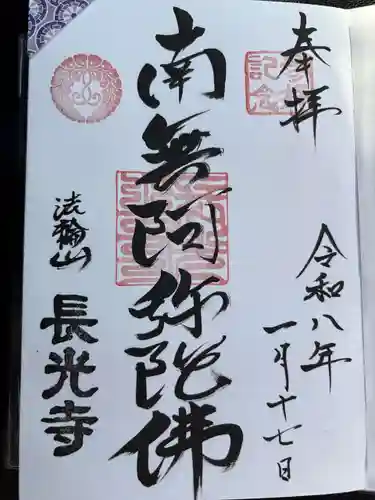 奉拝
令和八年
一月十七日
南無阿弥陀佛
法輪山
長光寺
記念